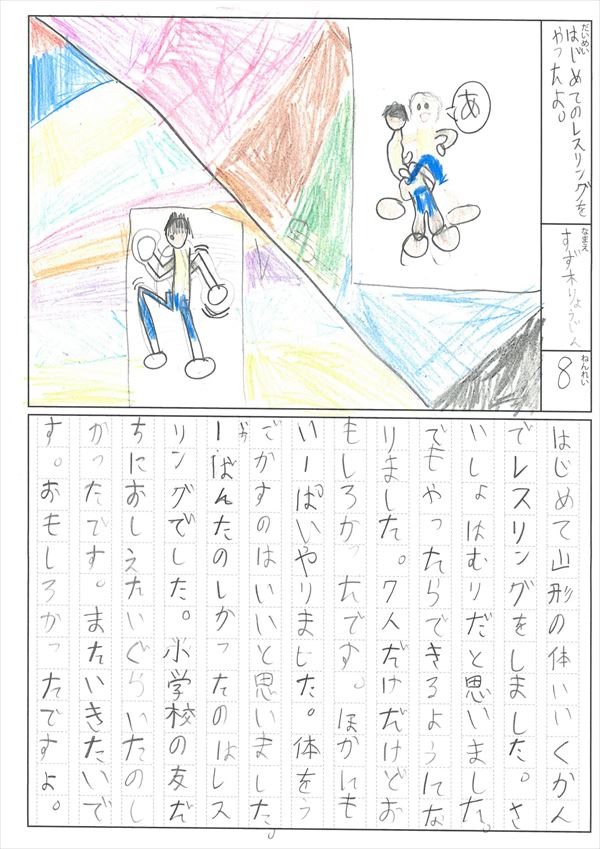 だいめい
はじめてのレスリングを
やったよ。
なまえ
すず木りょうじん
ねんれい
8
あ
はじめて山形の体いいくかん
でレスリングをしました。さ
いしょはむりだと思いました。
でもやったらできるようにな
りました。7人だけだけどお
もしろかったです。ほかにも
いーぱいやりました。体をう
ごかすのはいいと思いました。
一ばんたのしかったのはレス
リングでした。小学校の友だ
ちにおしえたいぐらいたのし
かったです。またいきたいで
す。おもしろかったですよ。